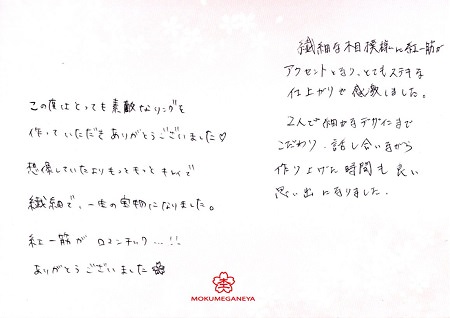 この度はとっても素敵なリングを
作っていただきありがとうございました♡
想像していたよりもっともっときれいで
繊細で、一生の宝物になりました。
紅一筋が ロマンチック…!!
ありがとうございました
繊細な相模様に紅一筋が
アクセントとなり、とてもステキな
仕上がりで感激しました。
2人で細かなデザインまで
こだわり、話し合いながら
作り上げた時間も良い
思い出になりました。
MOKUMEGANEYA